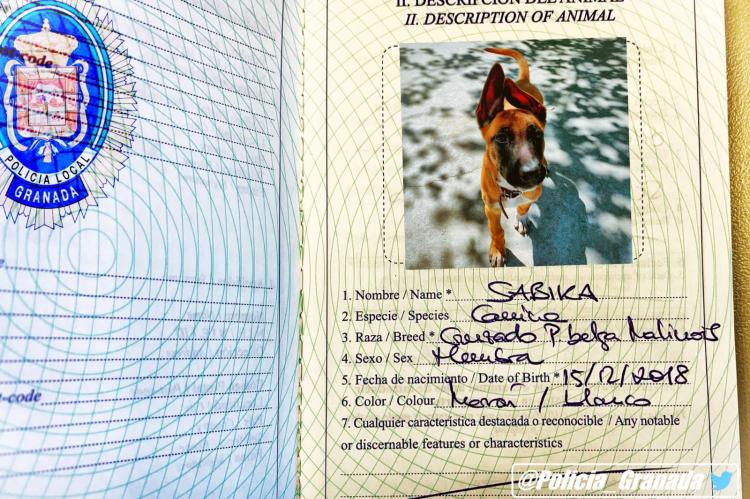 st-code
POLICIA LOCAL
GRANADA
t-code
II. DESCRIPCIÓN DEL ANIMAL
II. DESCRIPTION OF ANIMAL
1. Nombre / Name * SABIKA
2. Especie / Species Canina
3. Raza / Breed * Cruzado P. belga Malinois
4. Sexo / Sex Hembra
5. Fecha de nacimiento / Date of Birth * 15/12/2018
6. Color / Colour Marrón / blanco
7. Cualquier característica destacada o reconocible / Any notable
or discernable features or characteristics
@Policia_Granada